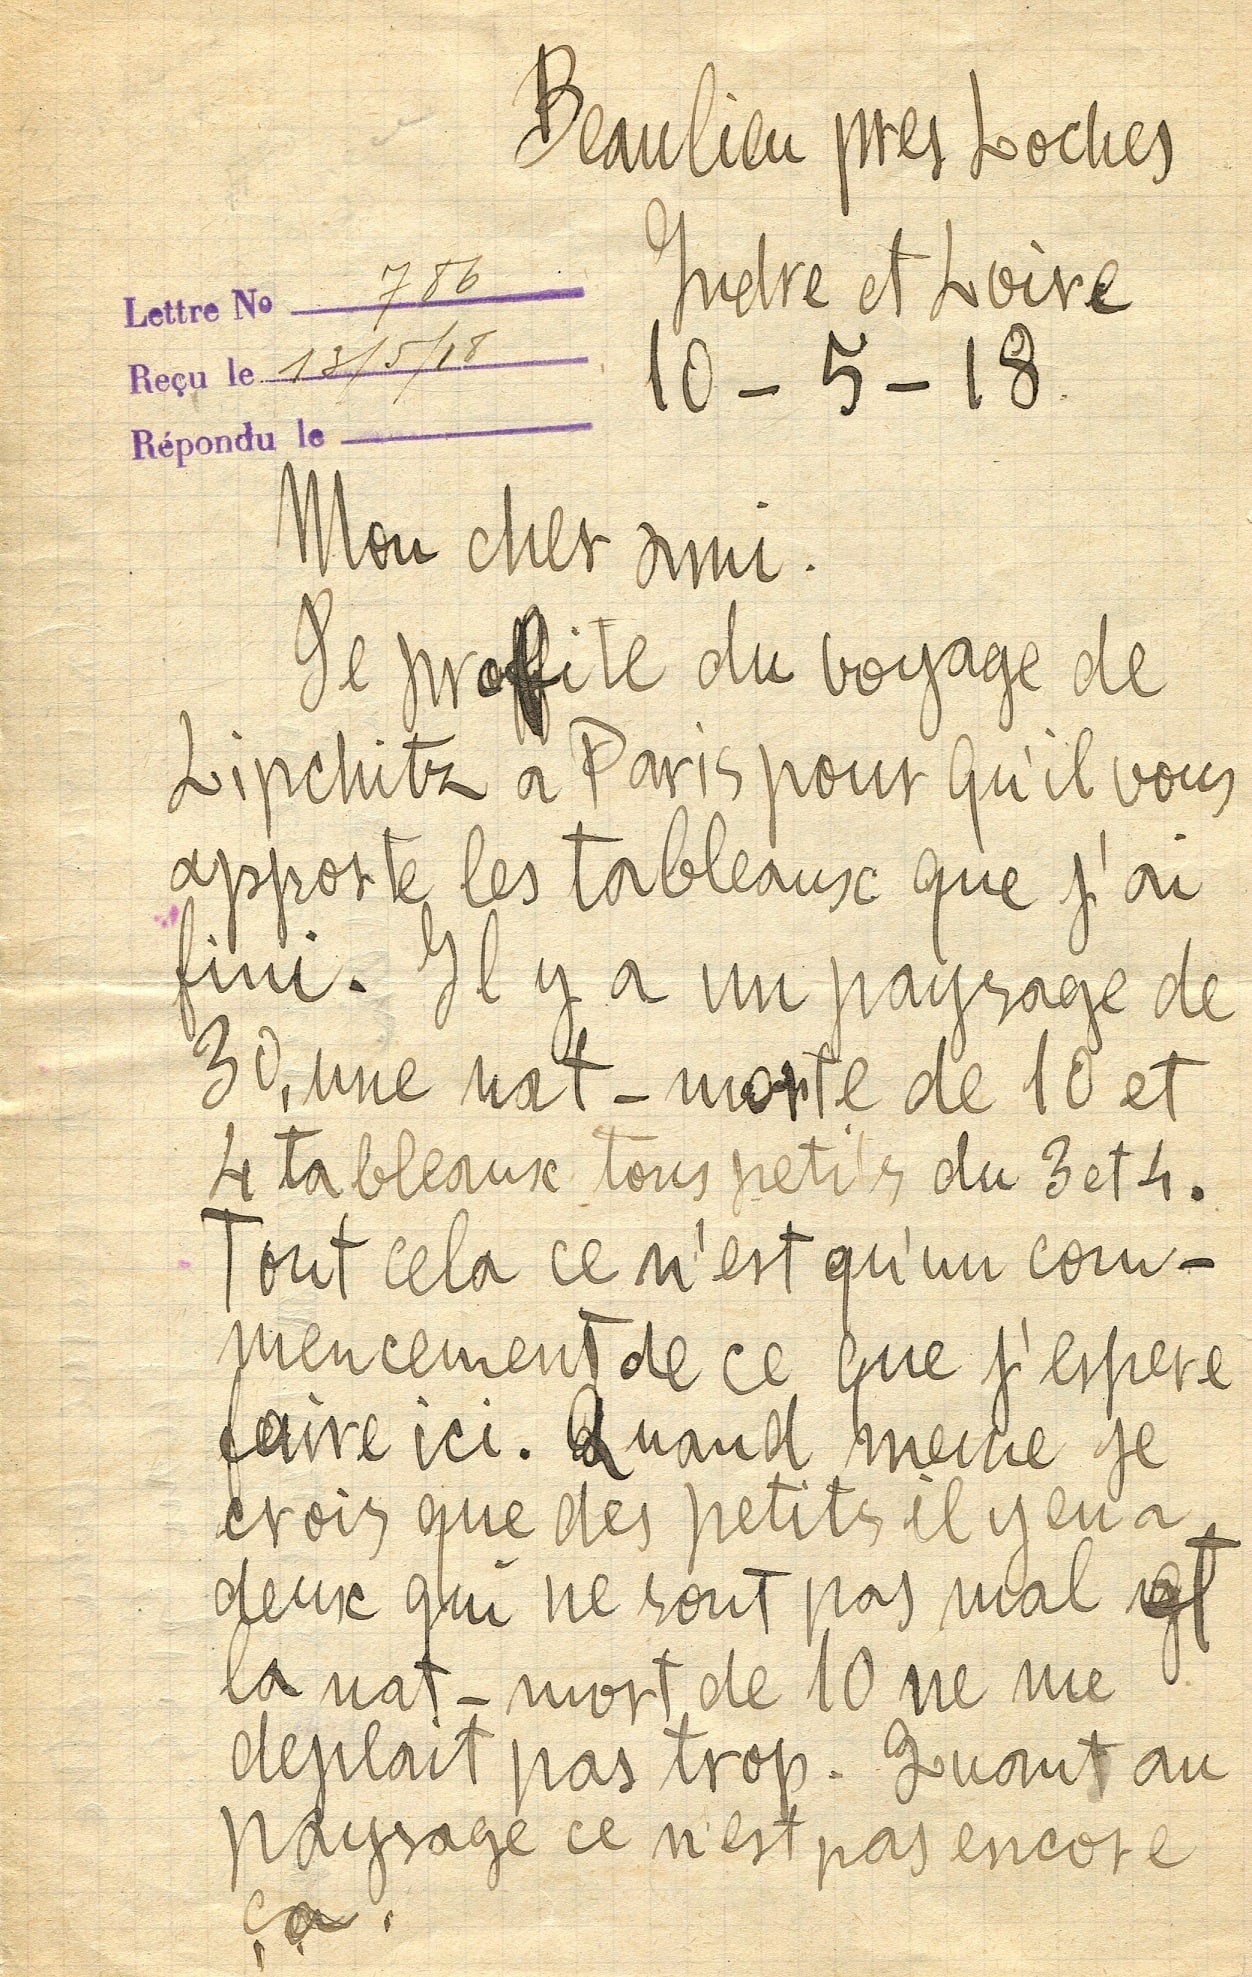 Beaulieu pres Loches
Indre et Loire
10 - 5 - 18.
Lettre No 786
Reçu le 13/5/18
Répondu le
Mon cher ami.
Je profite du voyage de
Lipchitz a Paris pour qu'il vous
apporte les tableaux que j'ai
fini. Il y a un paysage de
30, une nat-morte de 10 et
4 tableaux tous petits du 3 et 4.
Tout cela ce n'est qu'un com-
mencement de ce que j'espere
faire ici. Quand meme je
crois que des petits il y en a
deux qui ne sont pas mal et
la nat-mort de 10 ne me
deplait pas trop. Quant au
paysage ce n'est pas encore
ça.